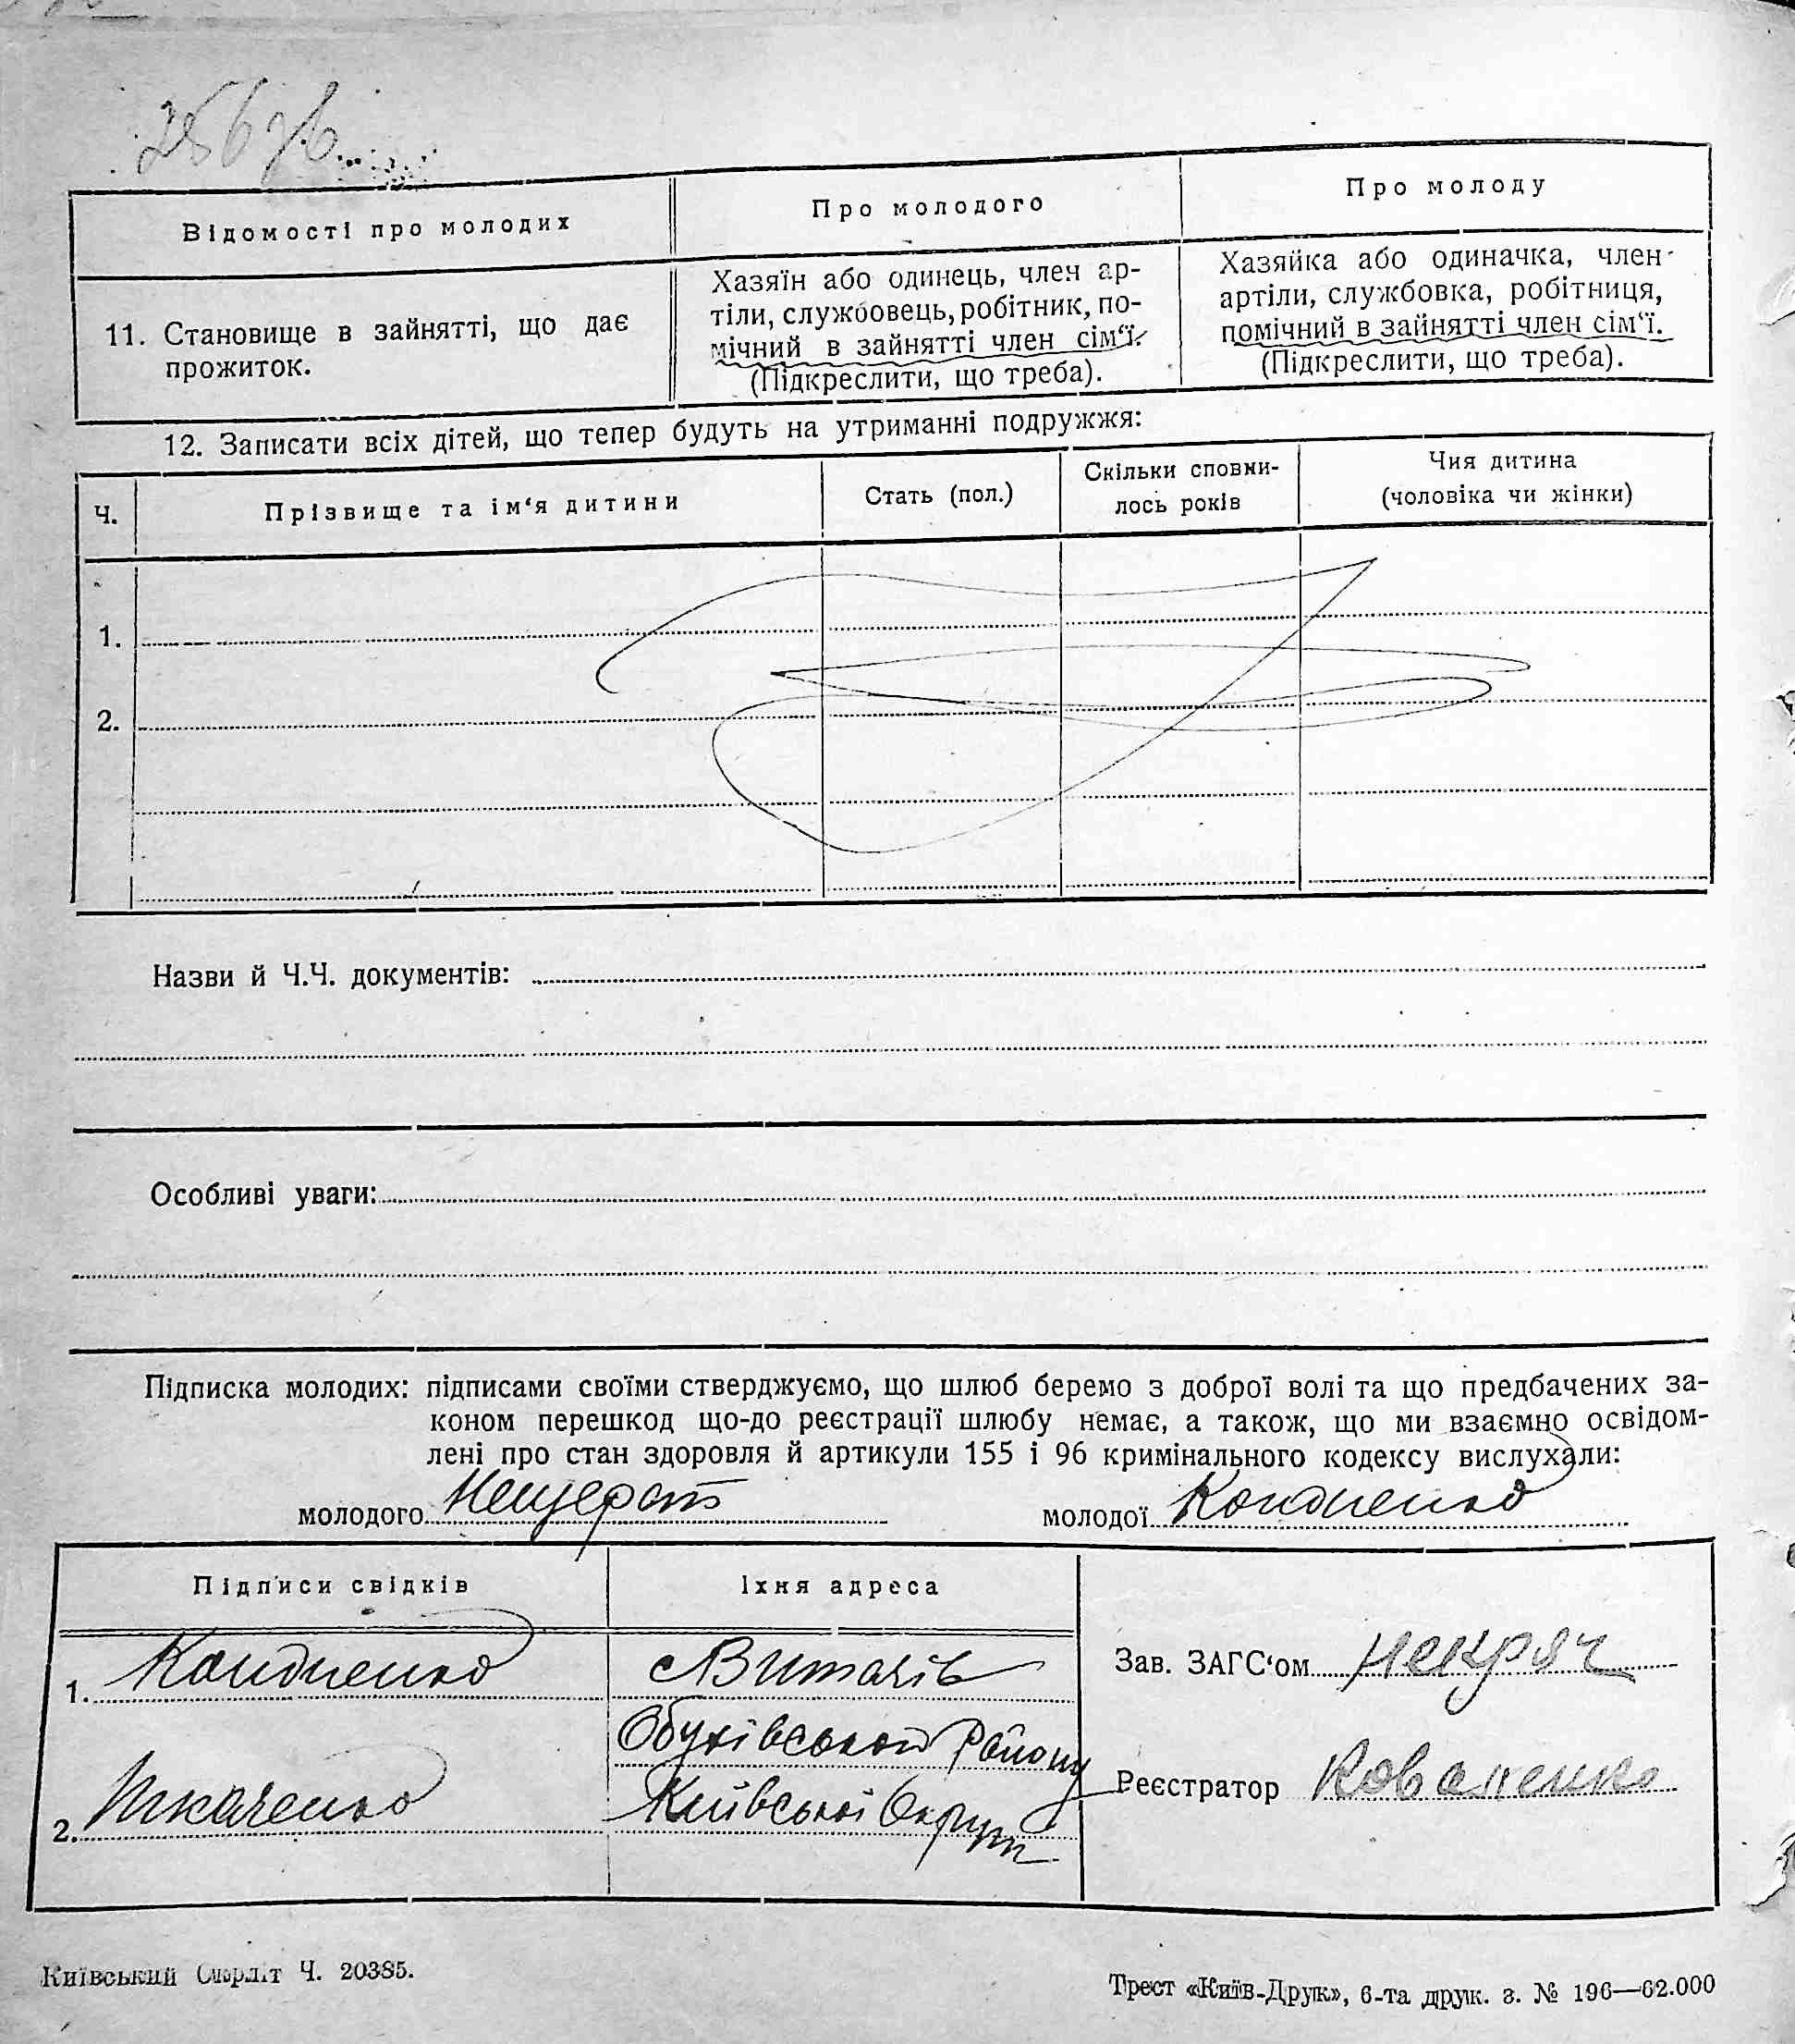 Відомості про молодих
Про молодого
Про молоду
11. Становище в зайнятті, що дає
прожиток.
Хазяїн або одинець, член ар-
тіли, службовець, робітник, по-
мічний в зайнятті член сім'ї.
(Підкреслити, що треба).
Хазяйка або одиначка, член
артіли, службовка, робітниця,
помічний в зайнятті член сім'ї.
(Підкреслити, що треба).
12. Записати всіх дітей, що тепер будуть на утриманні подружжя:
Ч.
Прізвище та ім'я дитини
Стать (пол.)
Скільки сповни-
лось років
Чия дитина
(чоловіка чи жінки)
1.
2.
Назви й Ч.Ч. документів:
Особливі уваги:
Підписка молодих: підписами своїми стверджуємо, що шлюб беремо з доброї волі та що предбачених за-
коном перешкод що-до реєстрації шлюбу немає, а також, що ми взаємно освідом-
лені про стан здоровля й артикули 155 і 96 кримінального кодексу вислухали:
молодого Нещерет
молодої Кондиенко
Підписи свідків
Їхня адреса
1. Кондиенко
Витачів
Зав. ЗАГС'ом Некряч
Обухівського Району
Реєстратор Коваленко
2. Ткаченко
Київської Округи
Київський Окрліт Ч. 20385.
Трест «Київ-Друк», 6-та друк. з. № 196—62.000